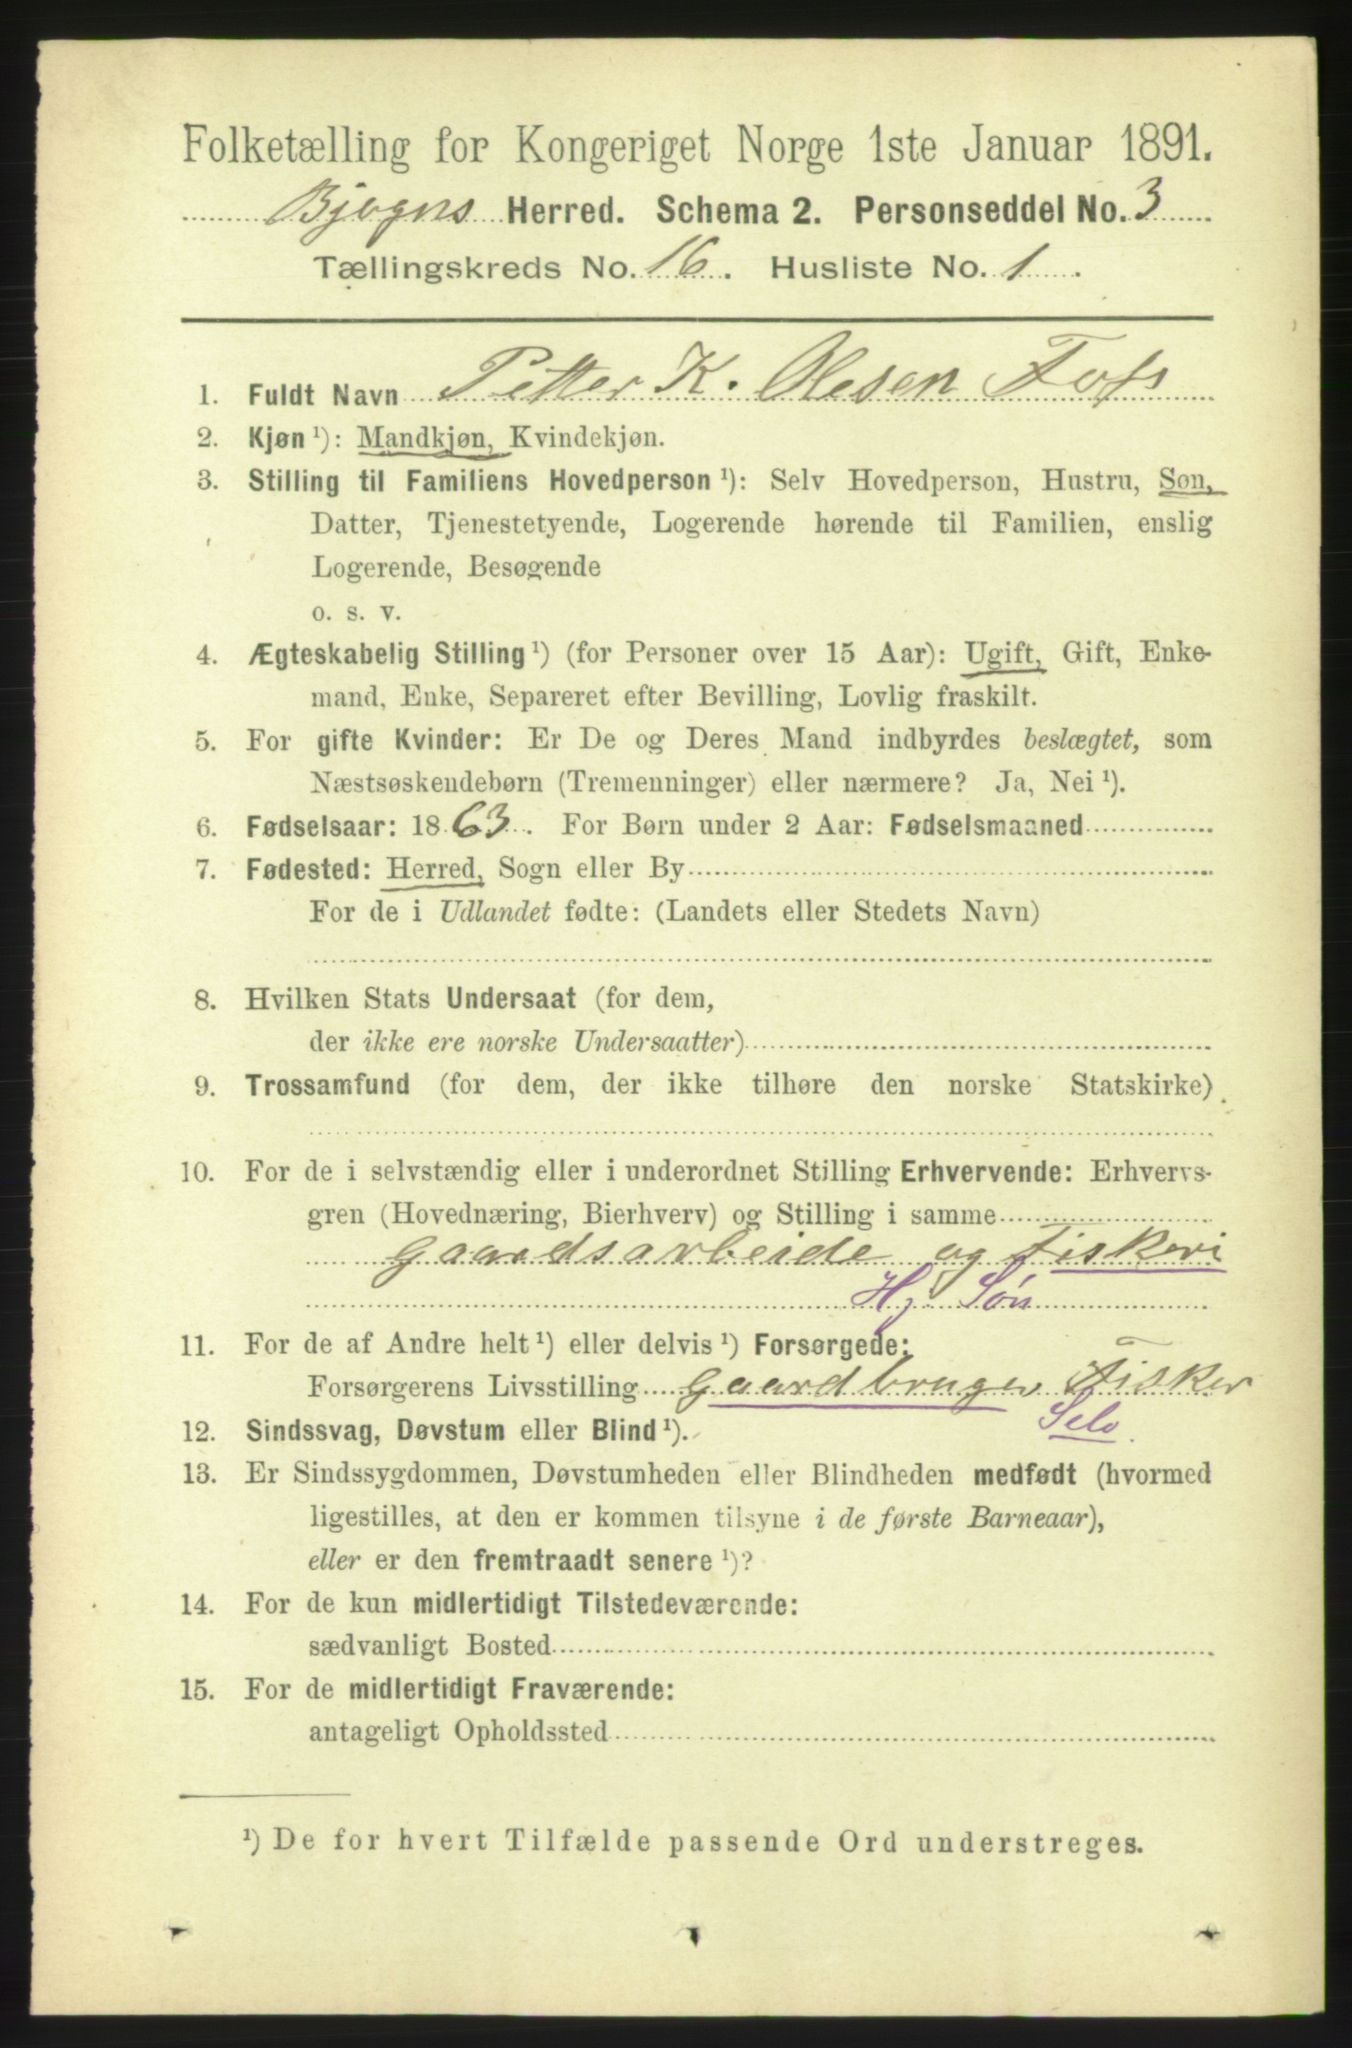 Folketælling for Kongeriget Norge 1ste Januar 1891.
Bjugns Herred. Schema 2. Personseddel No. 3
Tællingskreds No. 16. Husliste No. 1.
1. Fuldt Navn Petter K. Olesen
2. Kjøn ¹): Mandkjøn, Kvindekjøn.
3. Stilling til Familiens Hovedperson ¹): Selv Hovedperson, Hustru, Søn,
Datter, Tjenestetyende, Logerende hørende til Familien, enslig
Logerende, Besøgende
o. s. v.
4. Ægteskabelig Stilling ¹) (for Personer over 15 Aar): Ugift, Gift, Enke-
mand, Enke, Separeret efter Bevilling, Lovlig fraskilt.
5. For gifte Kvinder: Er De og Deres Mand indbyrdes beslægtet, som
Næstsøskendebørn (Tremenninger) eller nærmere? Ja, Nei ¹).
6. Fødselsaar: 1863. For Børn under 2 Aar: Fødselsmaaned
7. Fødested: Herred, Sogn eller By
For de i Udlandet fødte: (Landets eller Stedets Navn)
8. Hvilken Stats Undersaat (for dem,
der ikke ere norske Undersaatter)
9. Trossamfund (for dem, der ikke tilhøre den norske Statskirke)
10. For de i selvstændig eller i underordnet Stilling Erhvervende: Erhvervs-
gren (Hovednæring, Bierhverv) og Stilling i samme
Gaardsarbeide og Fiskeri
Hj. Søn
11. For de af Andre helt ¹) eller delvis ¹) Forsørgede:
Forsørgerens Livsstilling Gaardbruger Fisker
Selv.
12. Sindssvag, Døvstum eller Blind ¹).
13. Er Sindssygdommen, Døvstumheden eller Blindheden medfødt (hvormed
ligestilles, at den er kommen tilsyne i de første Barneaar),
eller er den fremtraadt senere ¹)?
14. For de kun midlertidigt Tilstedeværende:
sædvanligt Bosted
15. For de midlertidigt Fraværende:
antageligt Opholdssted
¹) De for hvert Tilfælde passende Ord understreges.